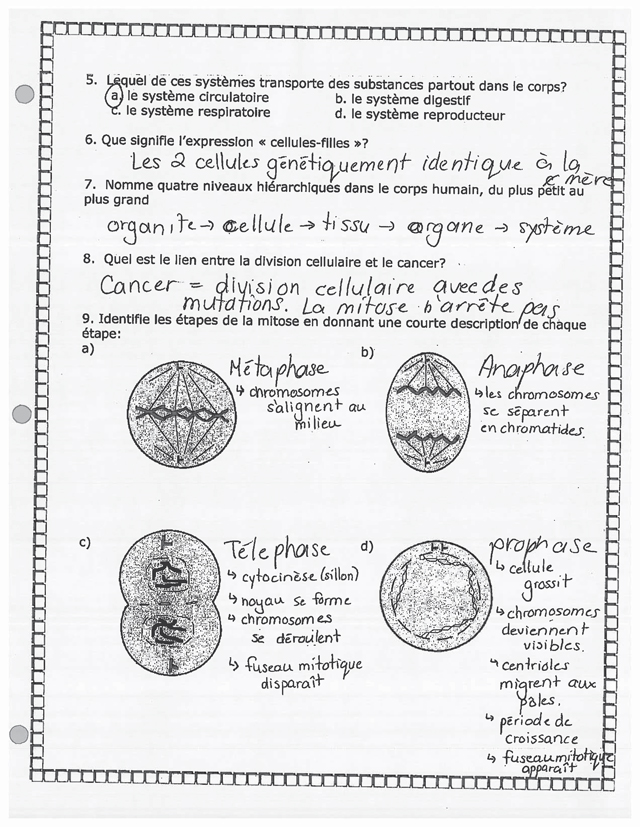 5. Lequel de ces systèmes transporte des substances partout dans le corps?
a. le système circulatoire b. le système digestif
c. le système respiratoire d. le système reproducteur
6. Que signifie l'expression « cellules-filles »?
Les 2 cellules génétiquement identique à la
c mère
7. Nomme quatre niveaux hiérarchiques dans le corps humain, du plus petit au
plus grand
organite → cellule → tissu → organe → système
8. Quel est le lien entre la division cellulaire et le cancer?
Cancer = division cellulaire avec des
mutations. La mitose n'arrête pas
9. Identifie les étapes de la mitose en donnant une courte description de chaque
étape:
a)
Métaphase
↳ chromosomes
s'alignent au
milieu
b)
Anaphase
↳ les chromosomes
se séparent
en chromatides.
c)
Télephase
↳ cytocinèse (sillon)
↳ noyau se forme
↳ chromosomes
se déroulent
↳ fuseau mitotique
disparaît
d)
prophase
↳ cellule
grossit
↳ chromosomes
deviennent
visibles.
↳ centrioles
migrent aux
pales.
↳ période de
croissance
↳ fuseau mitotique
apparaît